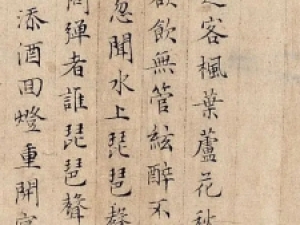 客楓葉蘆花秋
欲飲無管絃醉不
忽聞水上琵琶聲
問彈者誰琵琶聲
添酒回燈重開